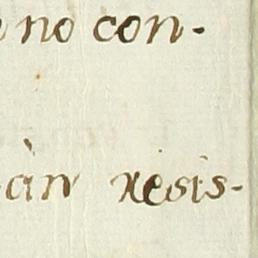 no con-
resis-